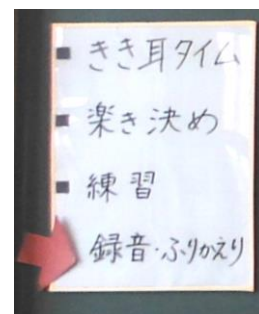 ■ きき耳タイム
■ 楽き決め
■ 練習
録音・ふりかえり